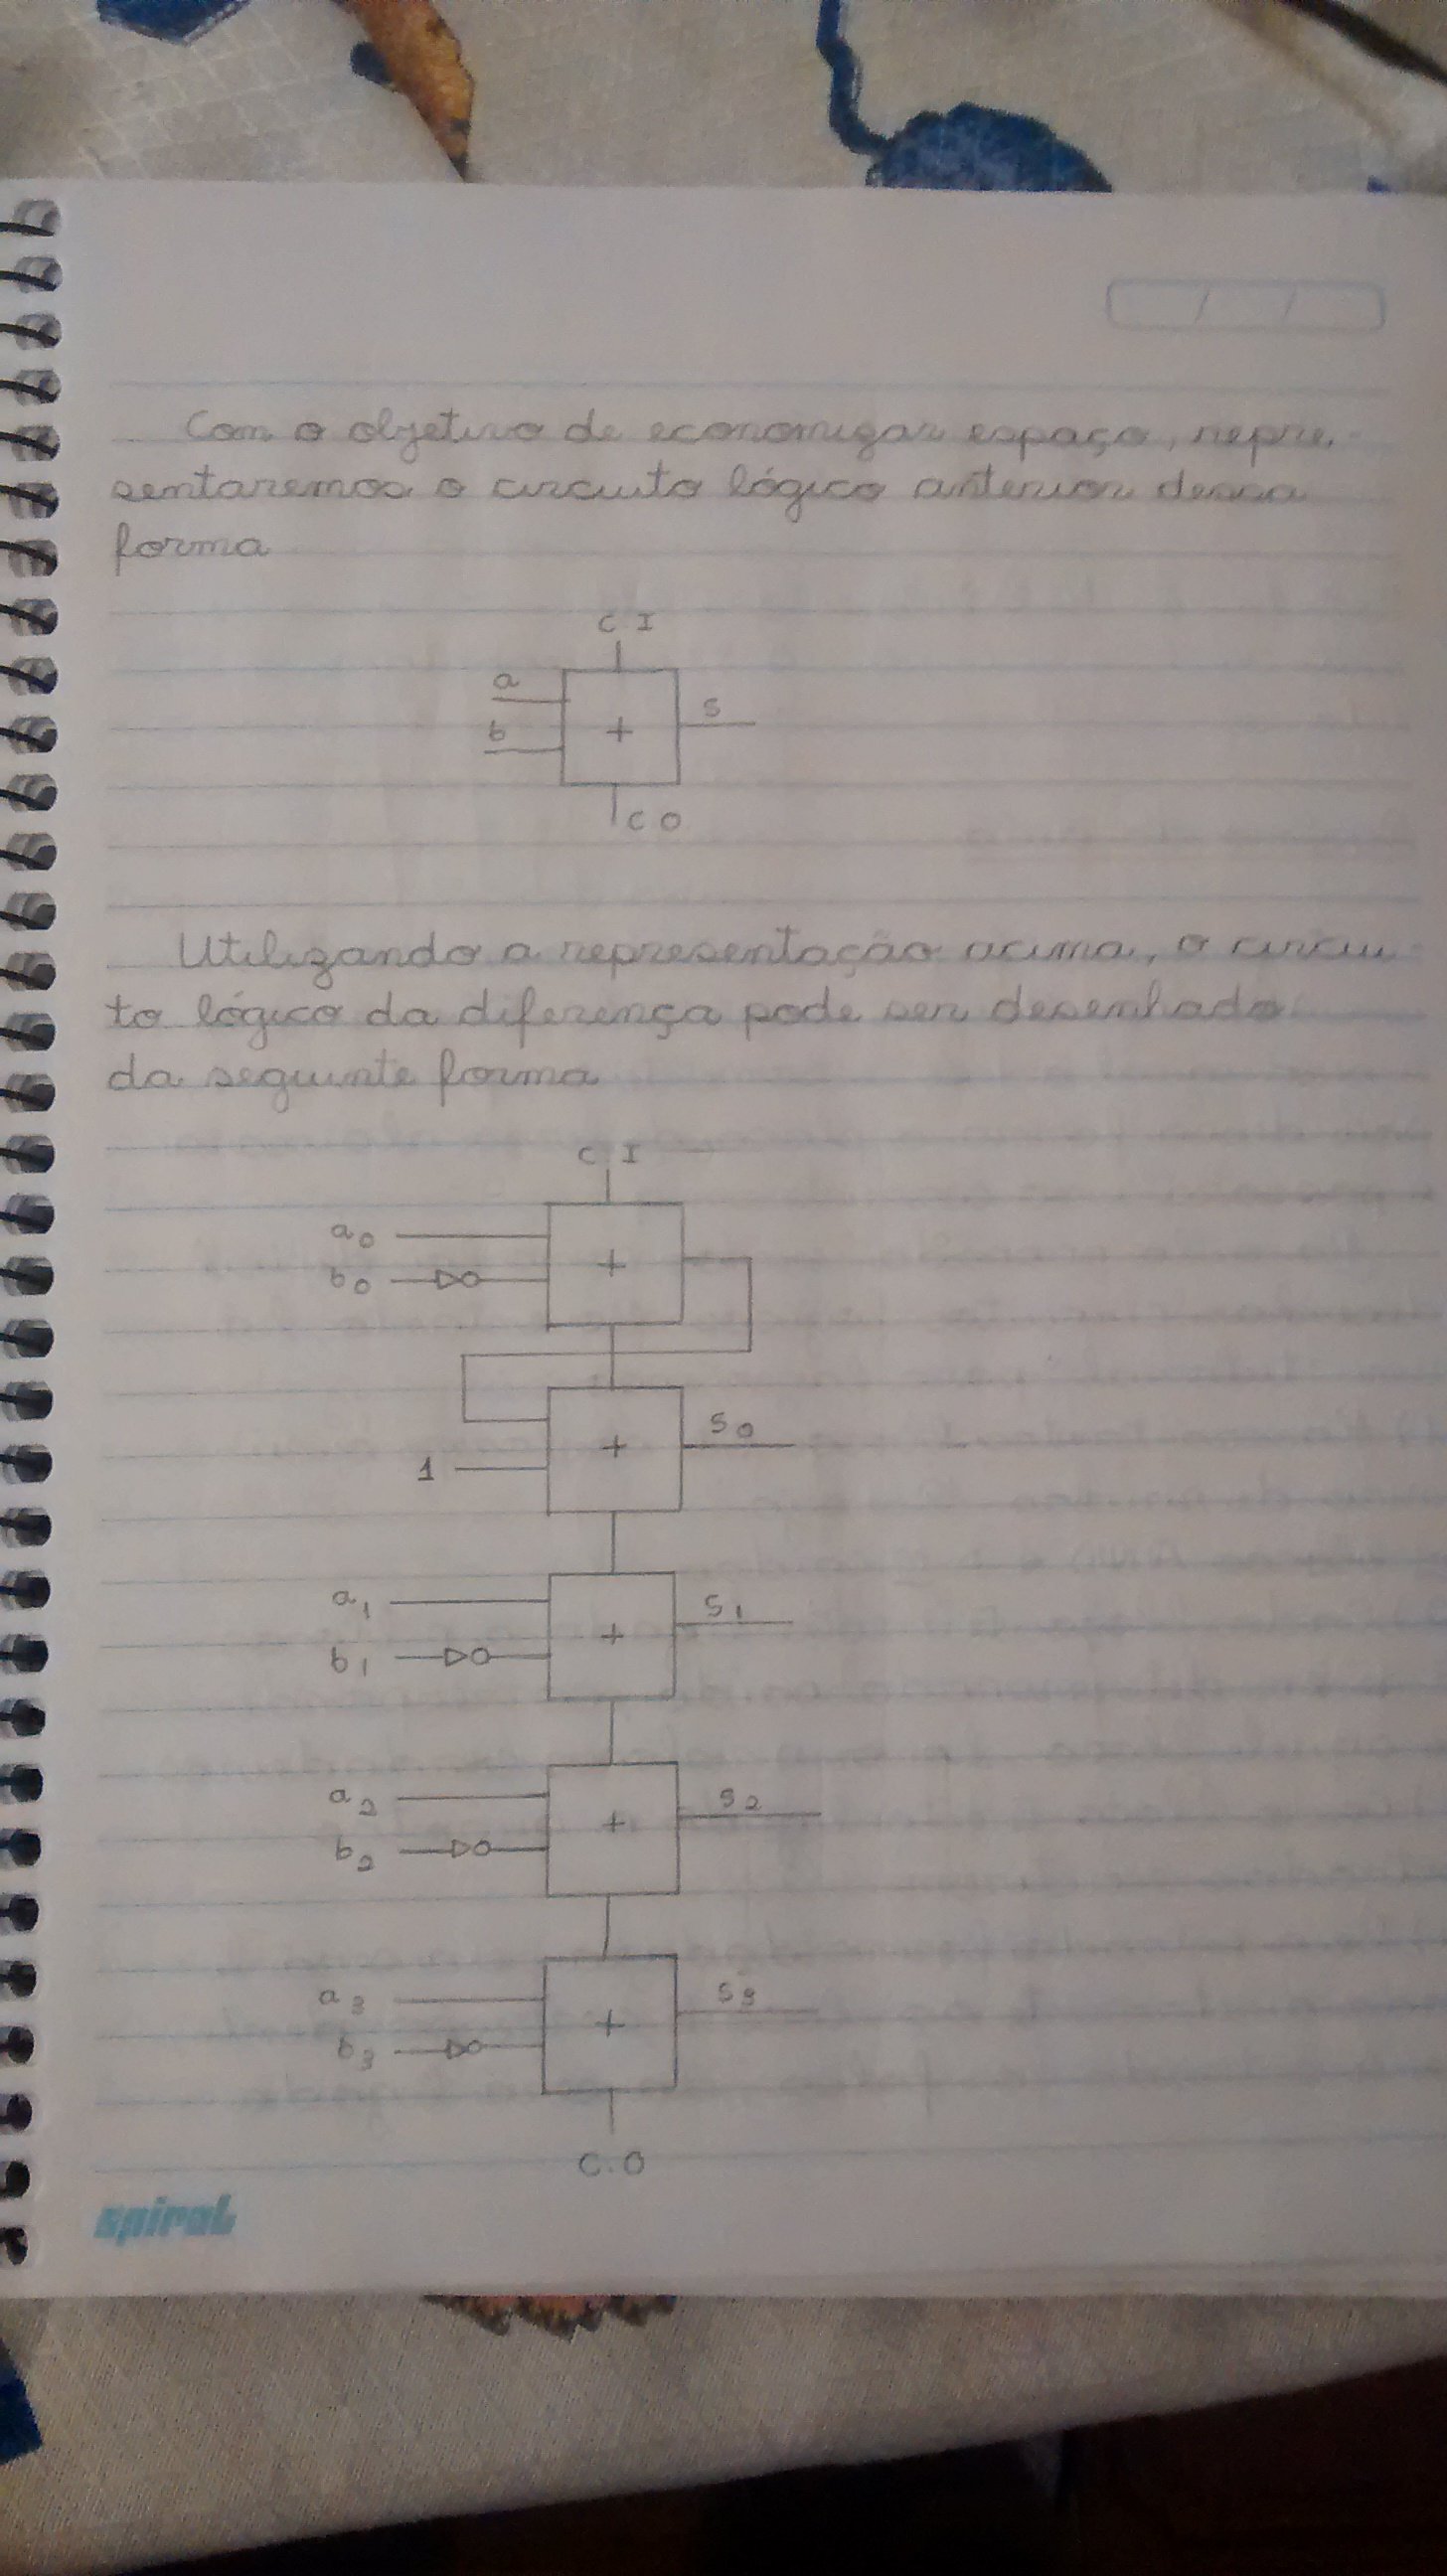 Com o objetivo de economizar espaço, repre-
sentaremos o circuito lógico anterior dessa
forma
C I
a
b
+
S
C O
Utilizando a representação acima, o circui-
to lógico da diferença pode ser desenhado
da seguinte forma
C I
a0
b0
+
1
+
S0
a1
b1
+
S1
a2
b2
+
S2
a3
b3
+
S3
C.O
spiral